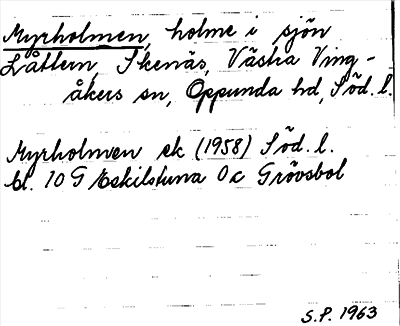 Myrholmen, holme i sjön
Låttern, Skenäs, Västra Ving-
åkers sn, Oppunda hd, Söd. l.
Myrholmen ek (1958) Söd. l.
bl. 10 G Eskilstuna Oc Grövsbol
S.P. 1963